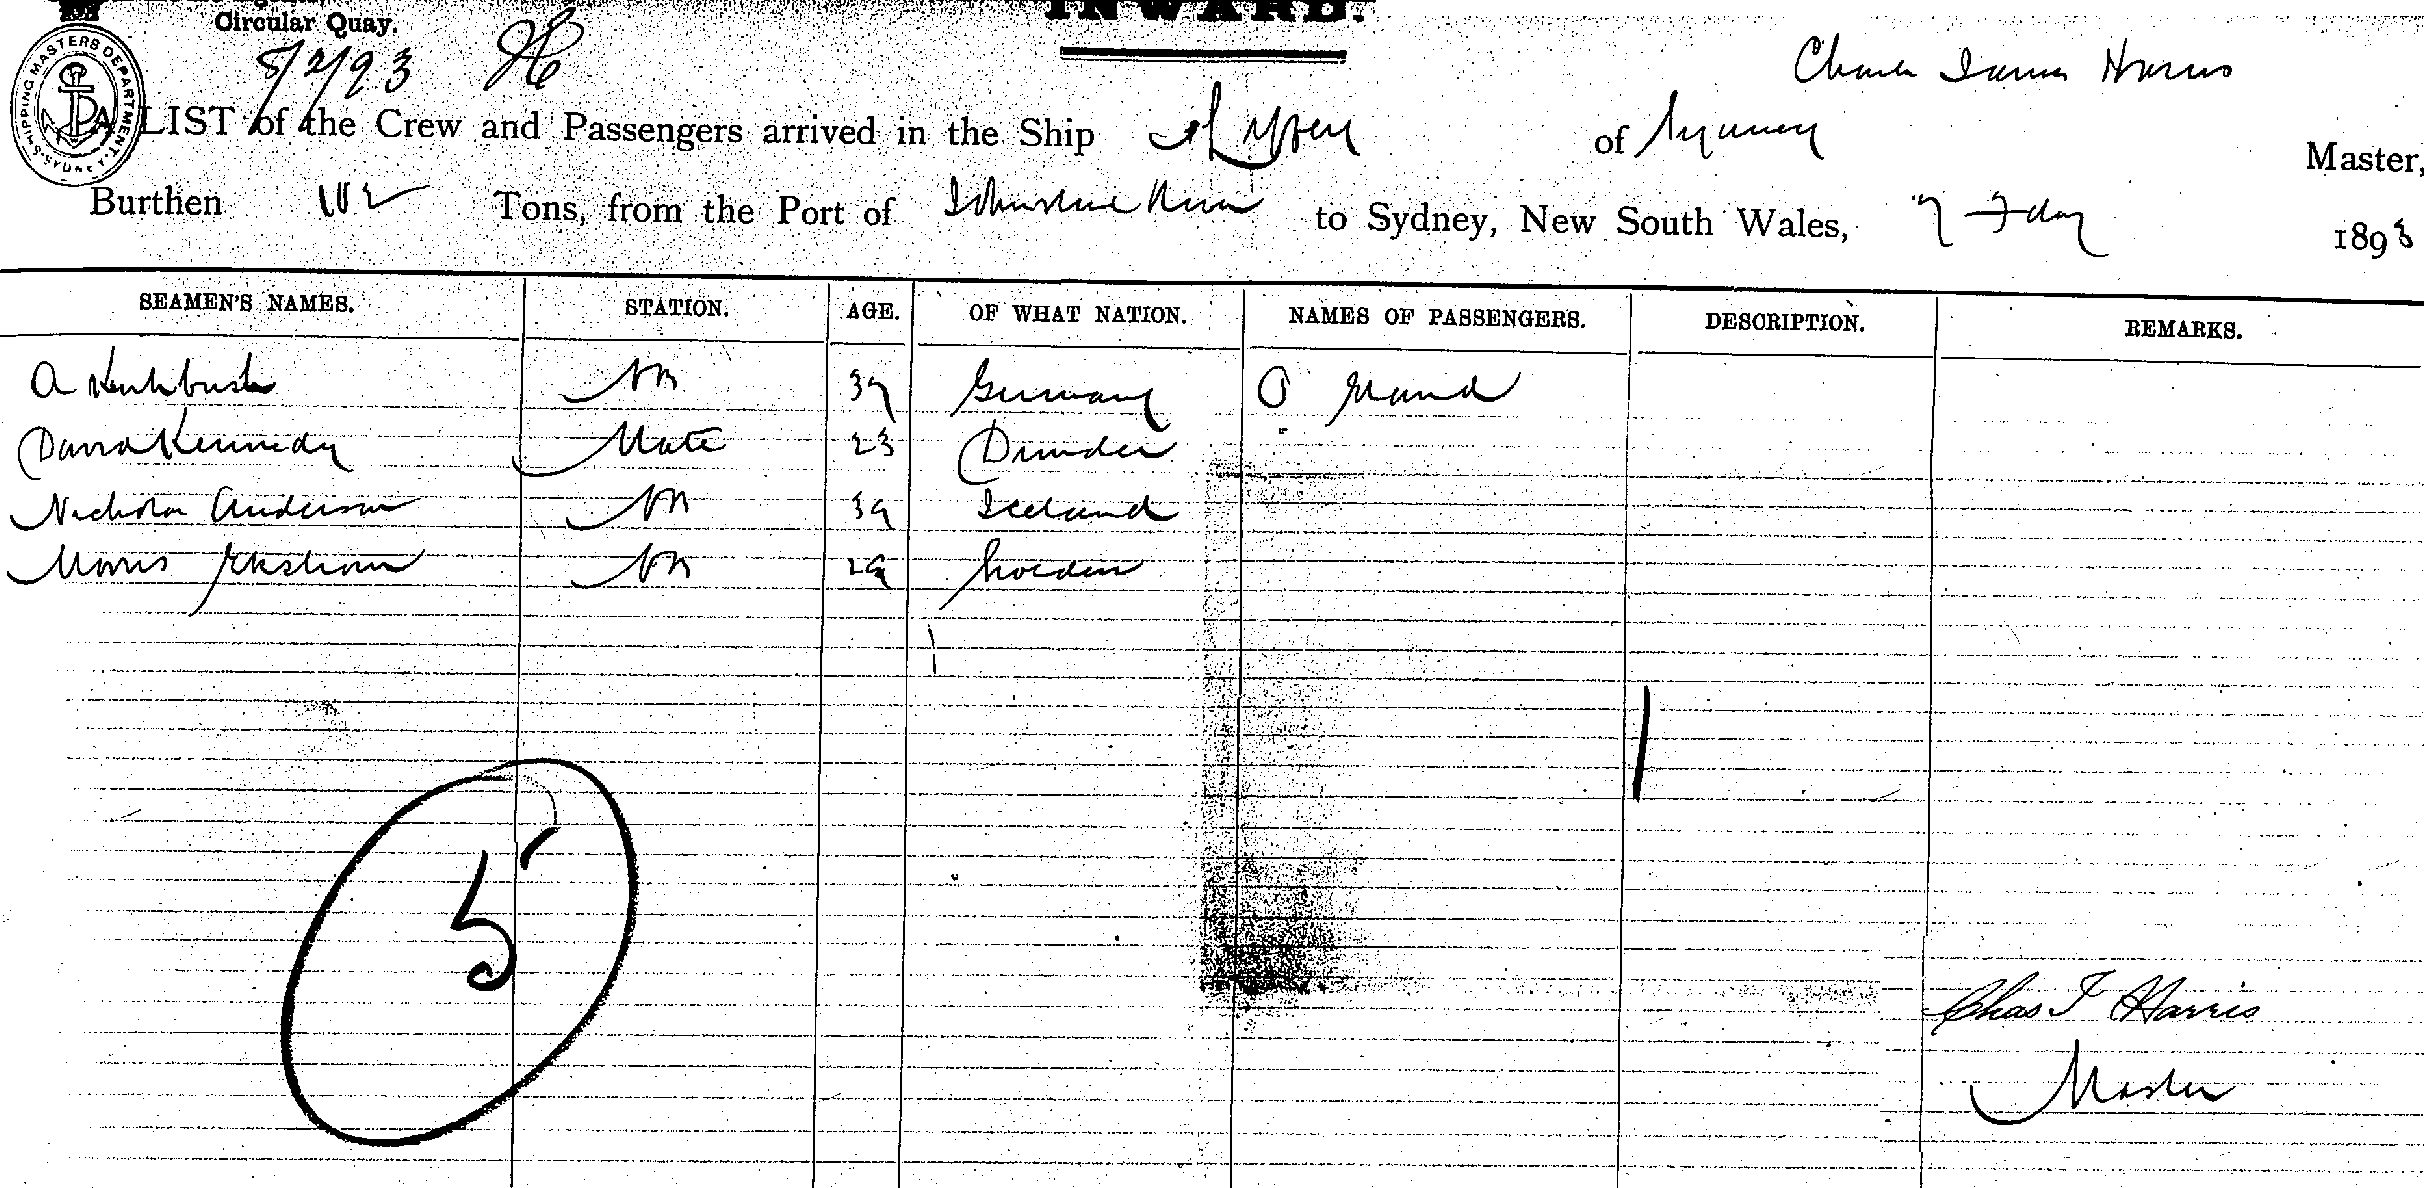 INWARD.
Circular Quay.
SHIPPING MASTERS DEPARTMENT
8/2/93
Charles James Harris
A LIST of the Crew and Passengers arrived in the Ship of Sydney Master,
Burthen 102 Tons, from the Port of Johnstone River to Sydney, New South Wales, 7 Feby 1893
SEAMEN'S NAMES. STATION. AGE. OF WHAT NATION. NAMES OF PASSENGERS. DESCRIPTION. REMARKS.
A 39 Germany
David Kennedy Mate 23 Dundee
Nicholas Anderson 39 Iceland
Morris 29 Sweden
5
Chas J Harris
Master